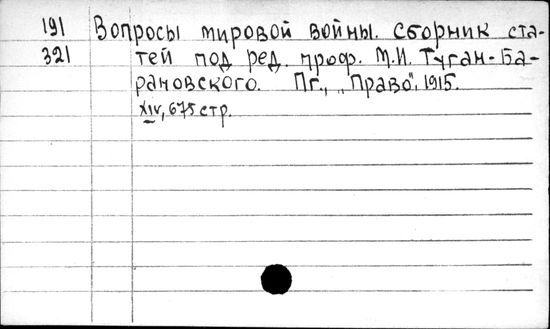 191 Вопросы мировой войны. Сборник ста-
321 тей под ред. проф. М.И. Туган-Ба-
рановского. Пг., „Право", 1915.
XIV, 675 стр.